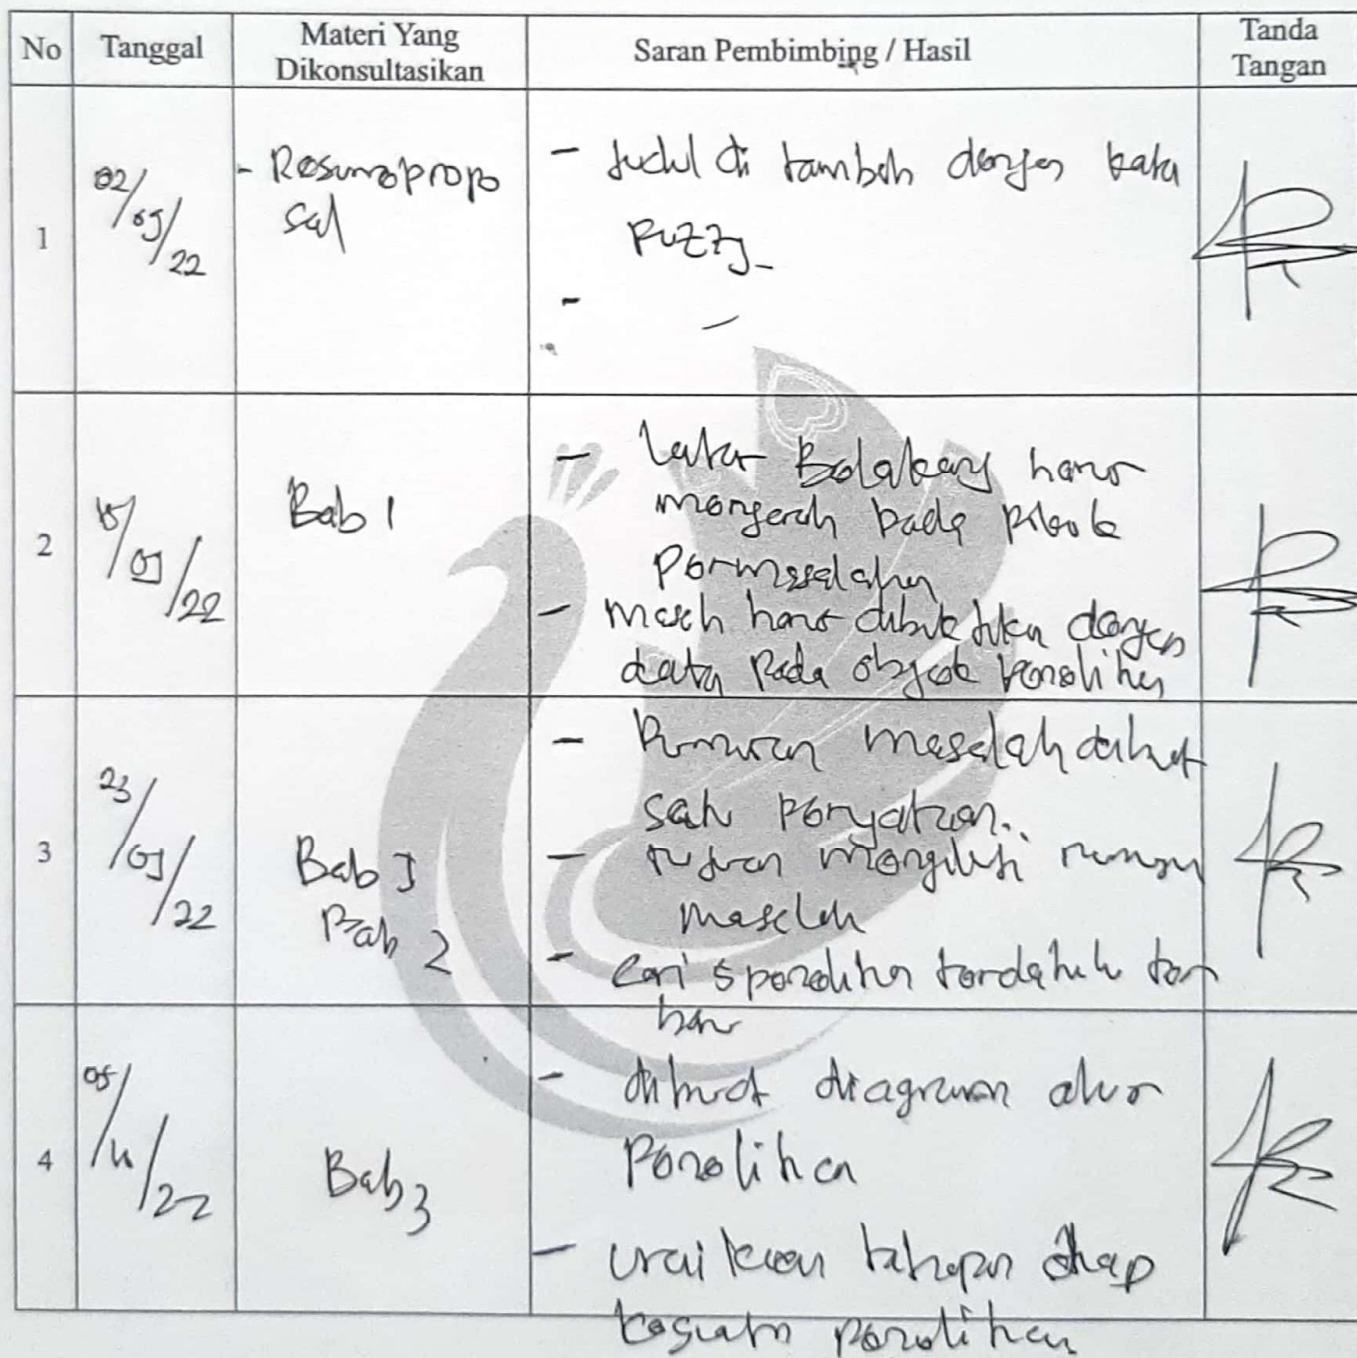 No Tanggal Materi Yang Dikonsultasikan Saran Pembimbing / Hasil Tanda Tangan
1 02/09/22 - Resume propo
sal
- Judul di tambah dengan kata
Fuzzy
-
2 15/09/22 Bab 1
- Latar Belakang harus
mengarah pada pokok
permasalahan
- masih harus dibuktikan dengan
data pada objek penelitian
3 23/09/22 Bab I
Bab 2
- Rumusan masalah dibuat
satu pernyataan.
- tujuan mengikuti rumusan
masalah
- cari 5 penelitian terdahulu ter
baru
4 /22 Bab 3
- dibuat diagram alur
Penelitian
- uraikan tahapan tiap
kegiatan penelitian